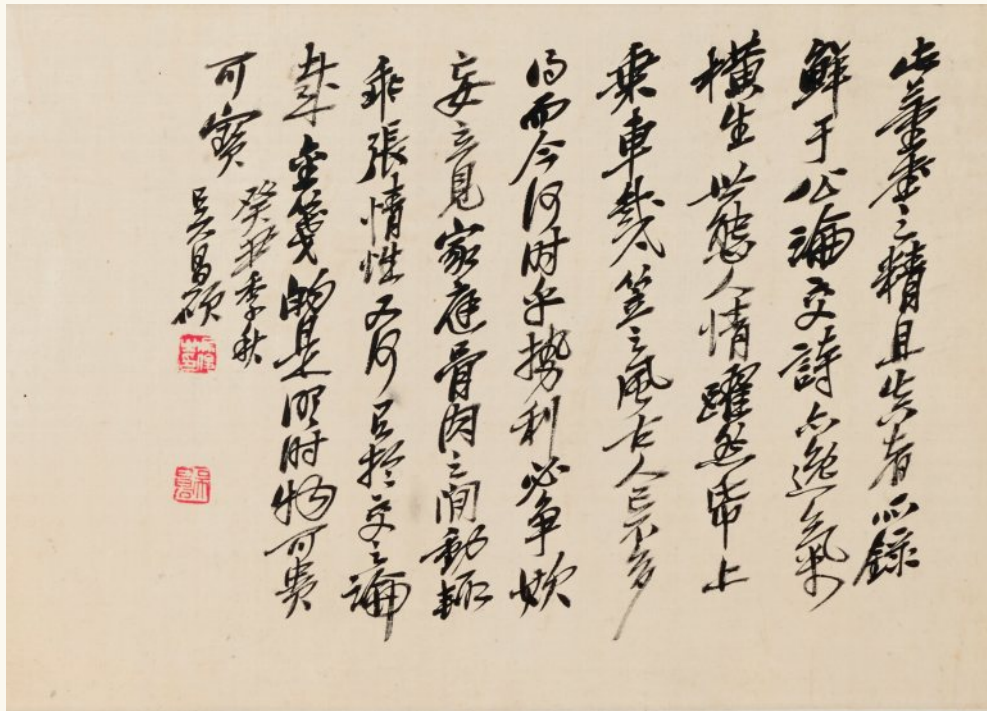 此董書之精且真者所錄
鮮于公論交詩亦逸氣
橫生世態人情躍然帋上
乘車戴笠之風古人已不多
得而今何时乎势利必争欺
妄立見家庭骨肉之间動輒
乖張情性又何足於交之論
哉金箋的是明时物可貴
可寶
癸丑季秋
吳昌碩